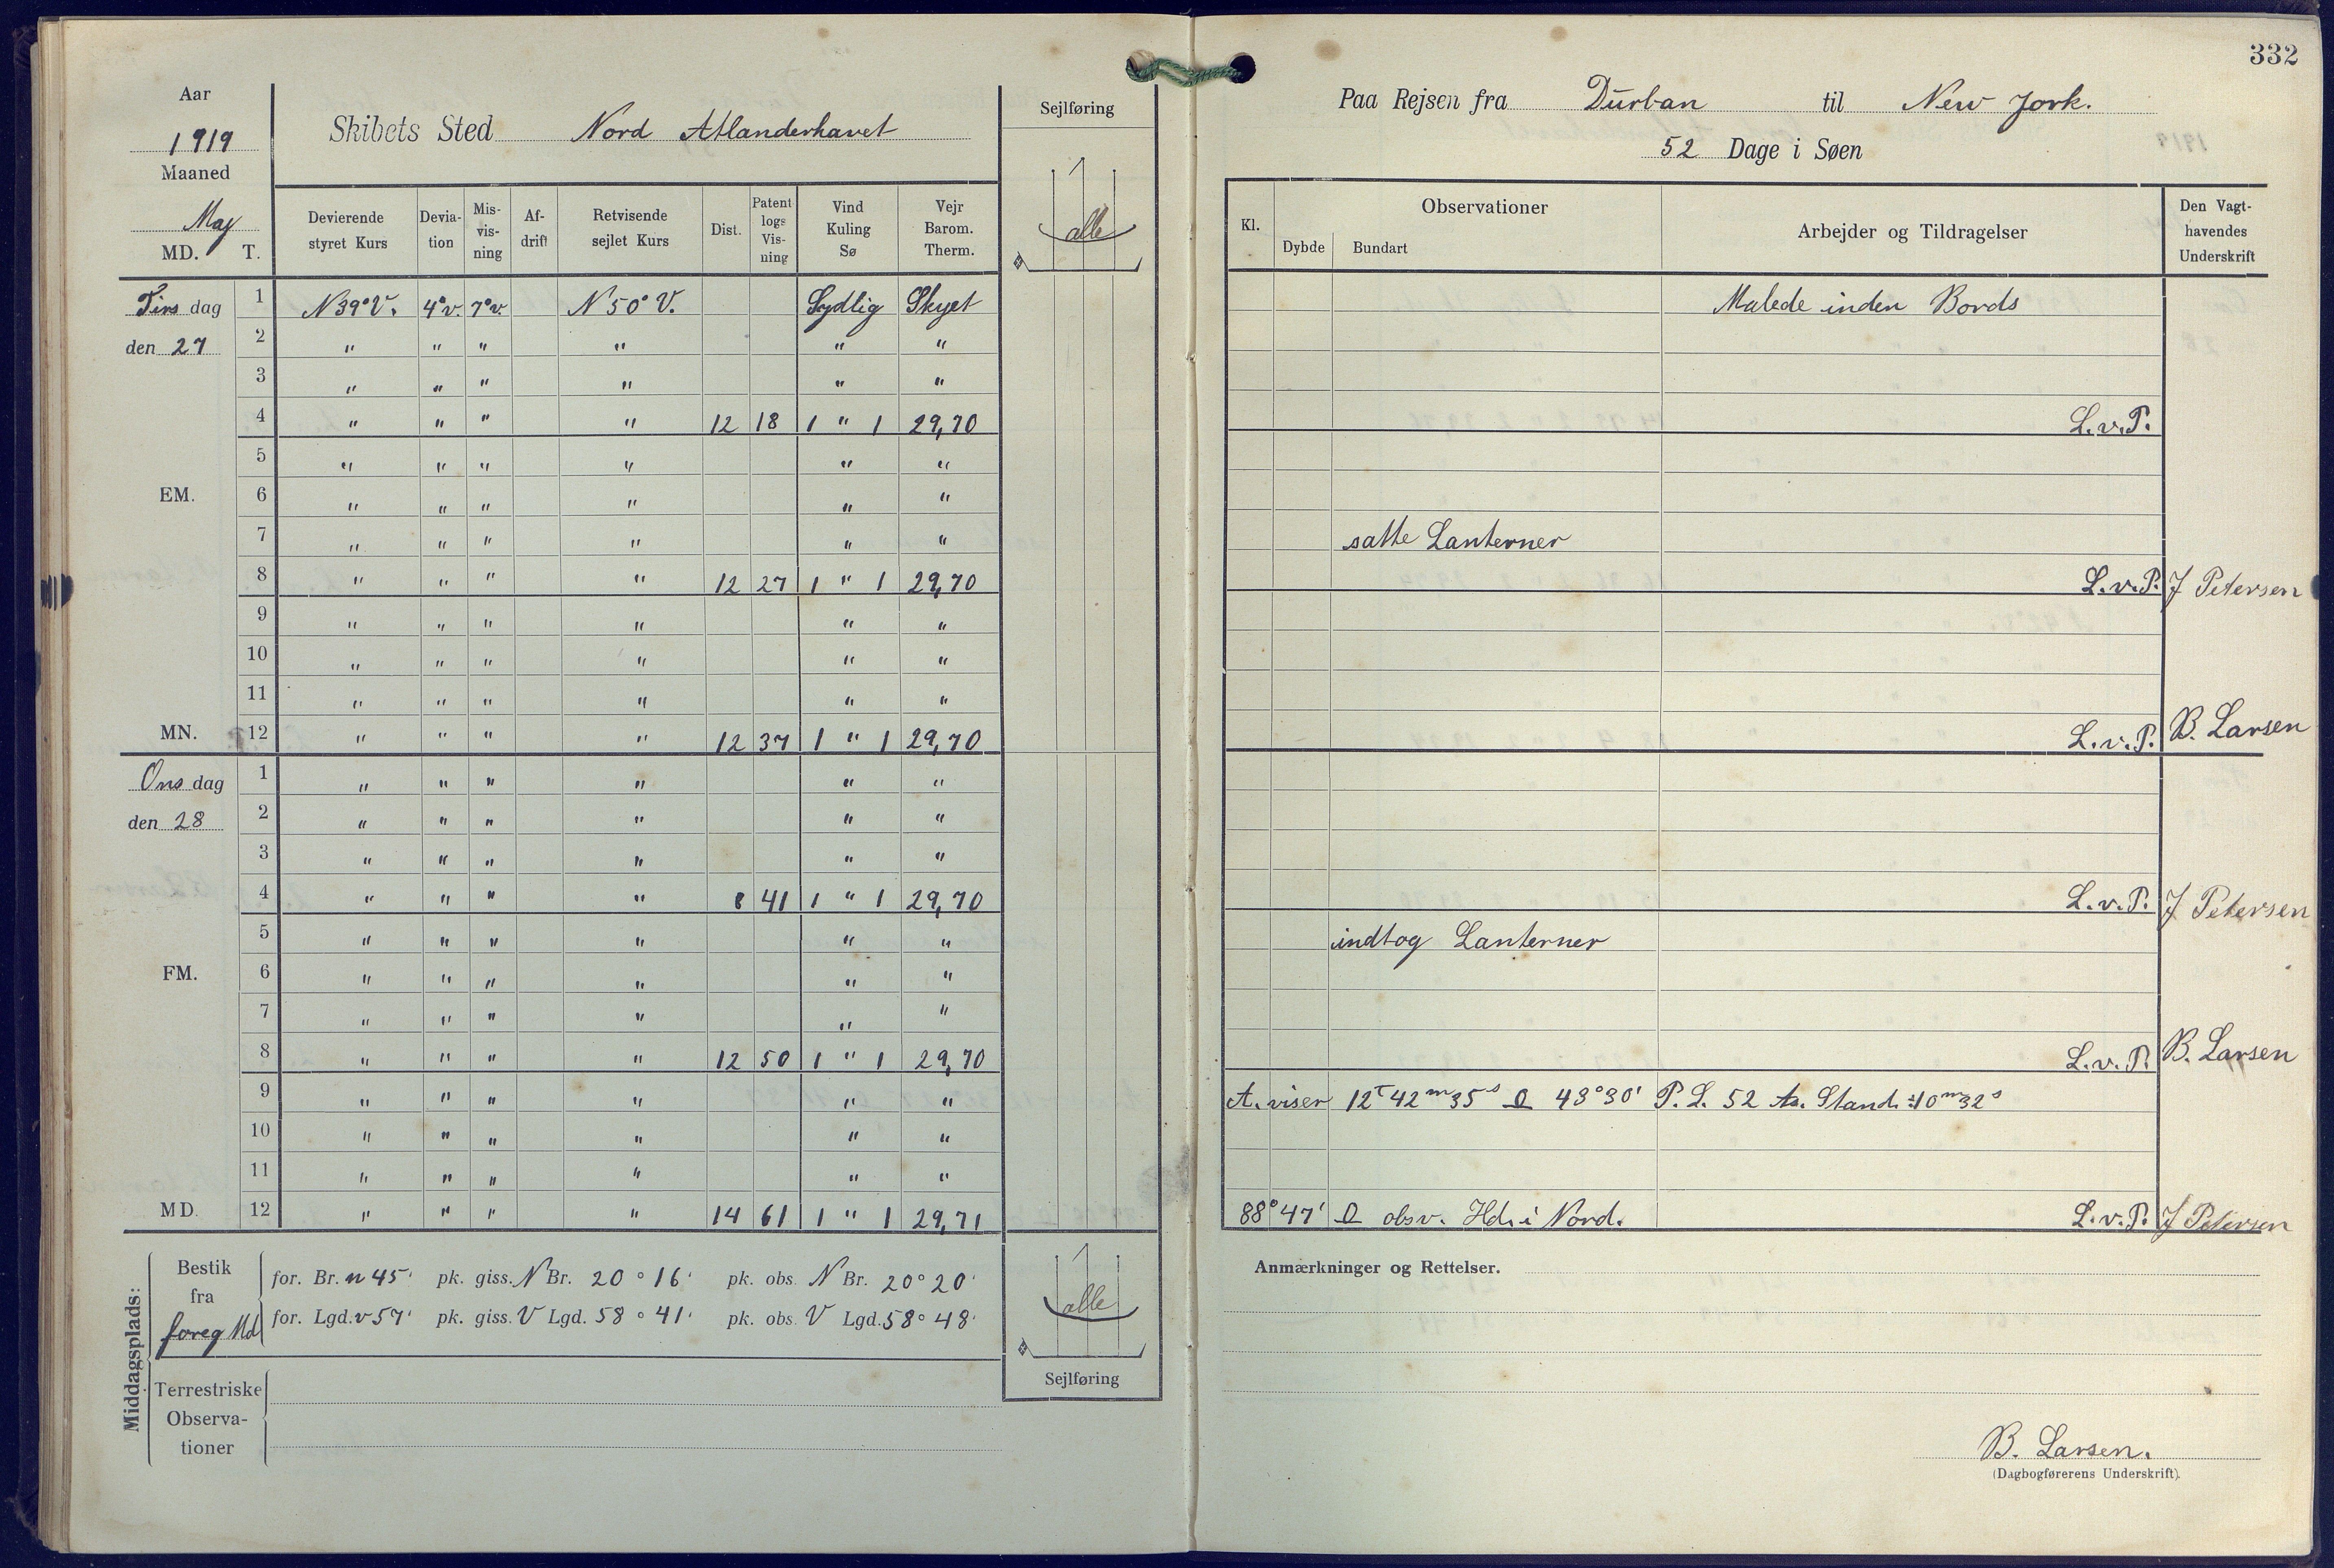 Aar
1919
Maaned
Maj
MD. T.
Skibets Sted Nord Atlanderhavet
Sejlføring
alle
Devierende styret Kurs
Deviation
Misvisning
Afdrift
Retvisende sejlet Kurs
Dist.
Patent logs Visning
Vind Kuling Sø
Vejr Barom. Therm.
Tirsdag 1 N 39° V. 4° v. 7° v. N 50° V. Sydlig Skyet
den 27 2 " " " " " "
3 " " " " " "
4 " " " " 12 18 1 " 1 29,70
5 " " " " " "
EM. 6 " " " " " "
7 " " " " " "
8 " " " " 12 27 1 " 1 29,70
9 " " " " " "
10 " " " " " "
11 " " " " " "
MN. 12 " " " " 12 37 1 " 1 29,70
Onsdag 1 " " " " " "
den 28 2 " " " " " "
3 " " " " " "
4 " " " " 8 41 1 " 1 29,70
5 " " " " " "
FM. 6 " " " " " "
7 " " " " " "
8 " " " " 12 50 1 " 1 29,70
9 " " " " " "
10 " " " " " "
11 " " " " " "
MD. 12 " " " " 14 61 1 " 1 29,71
Middagsplads:
Bestik fra foreg Md
for. Br. n 45' pk. giss. N Br. 20° 16' pk. obs. N Br. 20° 20'
for. Lgd. v 57' pk. giss. V Lgd. 58° 41' pk. obs. V Lgd. 58° 48'
alle
Sejlføring
Terrestriske Observationer
332
Paa Rejsen fra Durban til New York.
52 Dage i Søen
Kl.
Observationer
Dybde Bundart
Arbejder og Tildragelser
Den Vagthavendes Underskrift
Malede inden Bords
L.v.P.
satte Lanterner
L.v.P. J Petersen
L.v.P. B. Larsen
L.v.P. J Petersen
indtog Lanterner
L.v.P. B. Larsen
A. viser 12ᵀ 42ᵐ 35ˢ 43° 30' P.L. 52 Stand. 10ᵐ 32ˢ
88° 47' obsv. Hd. i Nord. L.v.P. J Petersen
Anmærkninger og Rettelser.
B. Larsen.
(Dagbogførerens Underskrift).